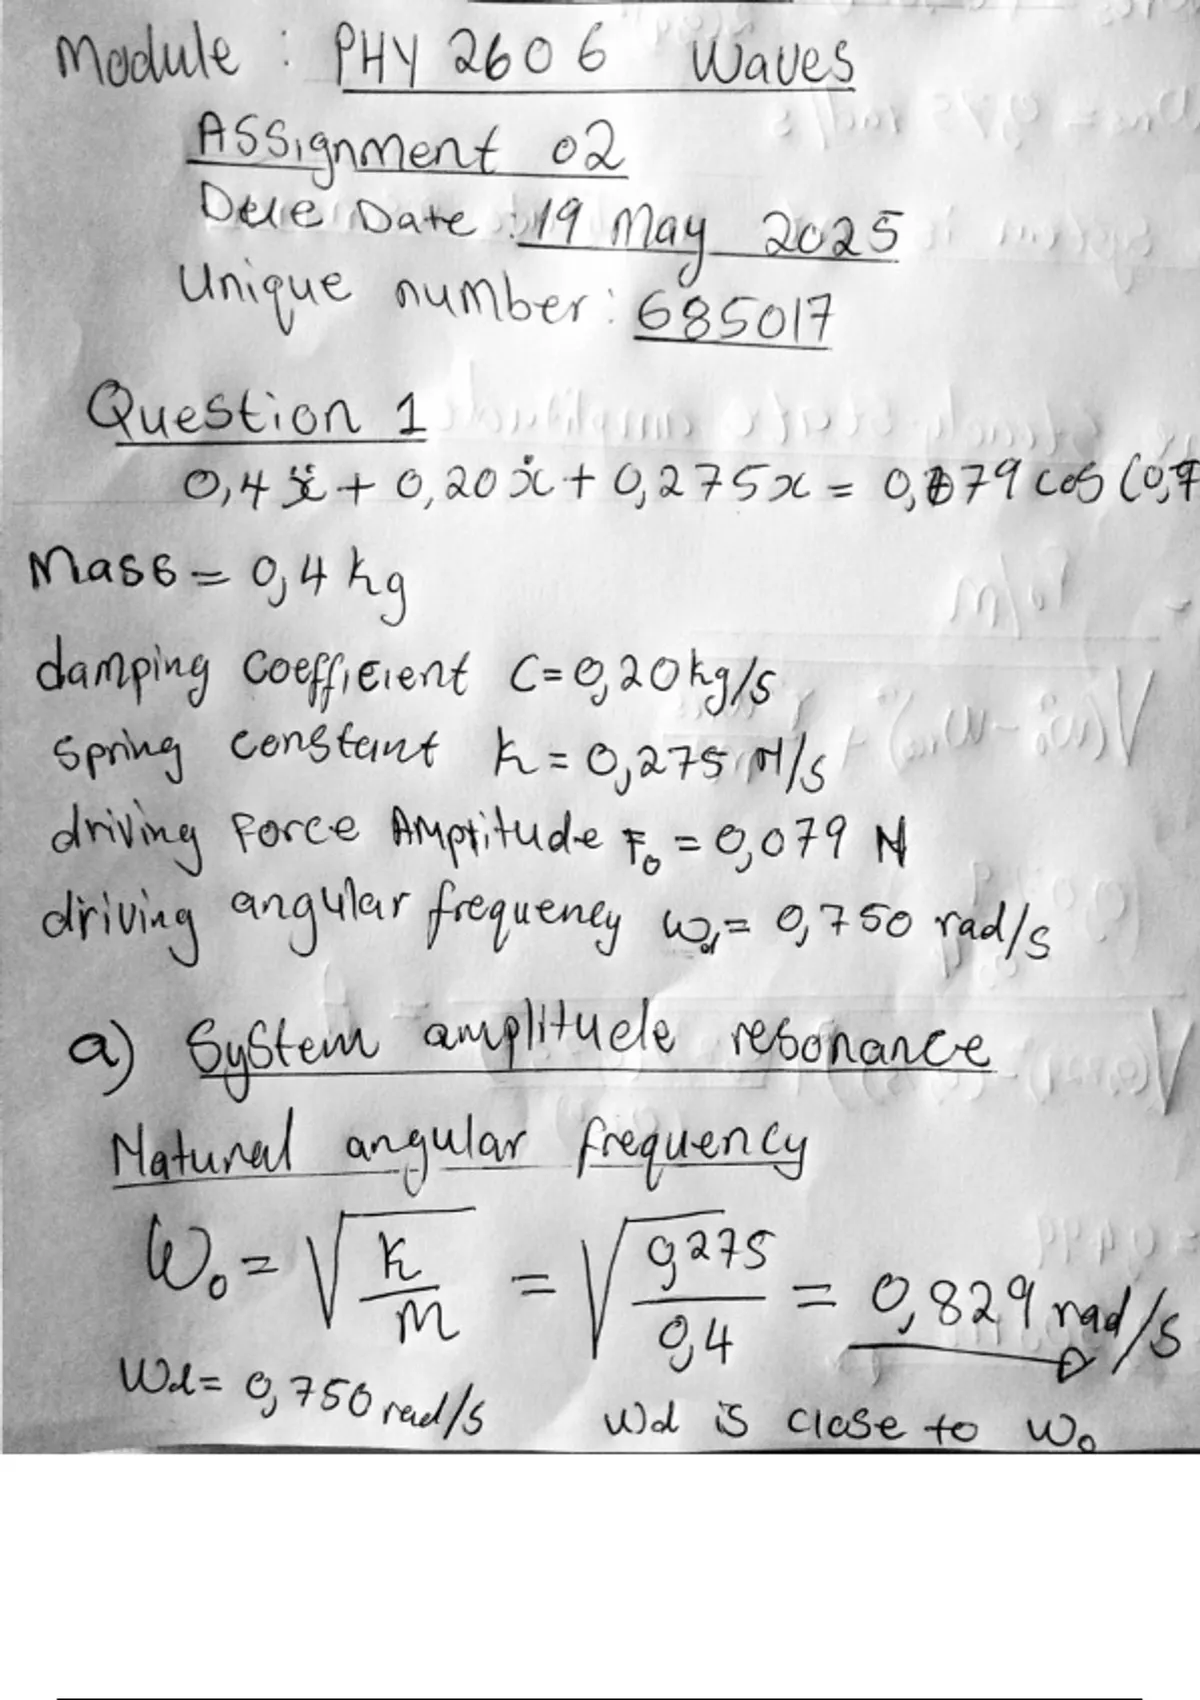 Module : PHY 2606 Waves
Assignment 02
Due Date : 19 May 2025
Unique number : 685017
Question 1
0,4ẍ + 0,20ẋ + 0,275x = 0,079 cos (0,7
Mass = 0,4 kg
damping coefficient C = 0,20 kg/s
spring constant k = 0,275 N/s
driving Force Amptitude F₀ = 0,079 N
driving angular frequency ωd = 0,750 rad/s
a) System amplitude resonance
Natural angular frequency
ω₀ = √(k/m) = √(0,275/0,4) = 0,829 rad/s
ωd = 0,750 rad/s ωd is close to ω₀